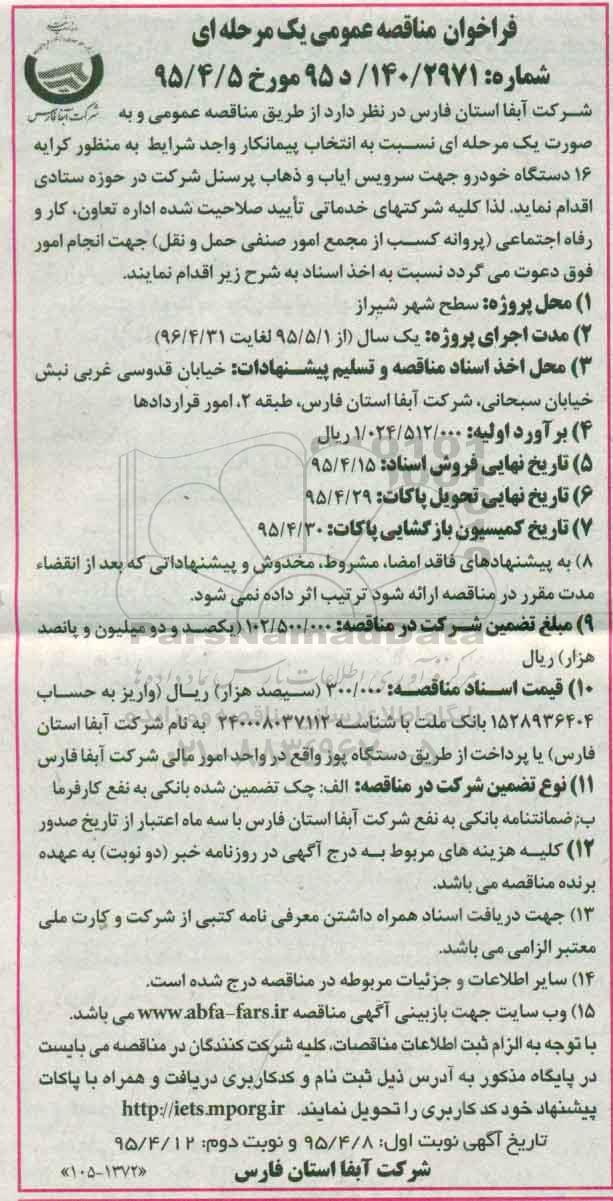 فراخوان مناقصه عمومی یک مرحله ای
شماره: ۱۴۰/۲۹۷۱/ د ۹۵ مورخ ۹۵/۴/۵
شرکت آبفا فارس
شـرکت آبفا استان فارس در نظر دارد از طریق مناقصه عمومی و به
صورت یک مرحله ای نسـبت به انتخاب پیمانکار واجد شرایط به منظور کرایه
۱۶ دستگاه خودرو جهت سرویس ایاب و ذهاب پرسنل شرکت در حوزه ستادی
اقدام نماید. لذا کلیه شرکتهای خدماتی تأیید صلاحیت شده اداره تعاون، کار و
رفاه اجتماعی (پروانه کسـب از مجمع امور صنفی حمل و نقل) جهت انجام امور
فوق دعوت می گردد نسبت به اخذ اسناد به شرح زیر اقدام نمایند.
۱) محل پروژه: سطح شهر شیراز
۲) مدت اجرای پروژه: یک سال (از ۹۵/۵/۱ لغایت ۹۶/۴/۳۱)
۳) محل اخذ اسناد مناقصه و تسلیم پیشـنهادات: خیابان قدوسی غربی نبش
خیابان سبحانی، شرکت آبفا استان فارس، طبقه ۲، امور قراردادها
۴) برآورد اولیه: ۱/۰۲۴/۵۱۲/۰۰۰ ریال
۵) تاریخ نهایی فروش اسناد: ۹۵/۴/۱۵
۶) تاریخ نهایی تحویل پاکات: ۹۵/۴/۲۹
۷) تاریخ کمیسیون بازگشایی پاکات: ۹۵/۴/۳۰
۸) به پیشنهادهای فاقد امضا، مشروط، مخدوش و پیشنهاداتی که بعد از انقضاء
مدت مقرر در مناقصه ارائه شود ترتیب اثر داده نمی شود.
۹) مبلغ تضمین شـرکت در مناقصه: ۱۰۲/۵۰۰/۰۰۰ (یکصد و دو میلیون و پانصد
هزار) ریال
۱۰) قیمت اسـناد مناقصـه: ۳۰۰/۰۰۰ (سـیصد هزار) ریـال (واریز به حساب
۱۵۲۸۹۳۶۴۰۴ بانک ملت با شناسـه ۲۴۰۰۰۸۰۳۷۱۱۲ به نام شرکت آبفا استان
فارس) یا پرداخت از طریق دستگاه پوز واقع در واحد امور مالی شرکت آبفا فارس
۱۱) نوع تضمین شرکت در مناقصه: الف: چک تضمین شده بانکی به نفع کارفرما
ب: ضمانتنامه بانکی به نفع شرکت آبفا استان فارس با سه ماه اعتبار از تاریخ صدور
۱۲) کلیـه هزینه های مربوط بـه درج آگهی در روزنامه خبر (دو نوبت) به عهده
برنده مناقصه می باشد.
۱۳) جهت دریافت اسناد همراه داشتن معرفی نامه کتبی از شرکت و کارت ملی
معتبر الزامی می باشد.
۱۴) سایر اطلاعات و جزئیات مربوطه در مناقصه درج شده است.
۱۵) وب سایت جهت بازبینی آگهی مناقصه www.abfa-fars.ir می باشد.
با توجه به الزام ثبت اطلاعات مناقصات، کلیه شرکت کنندگان در مناقصه می بایست
در پایگاه مذکور به آدرس ذیل ثبت نام و کدکاربری دریافت و همراه با پاکات
پیشنهاد خود کد کاربری را تحویل نمایند. http://iets.mporg.ir
تاریخ آگهی نوبت اول: ۹۵/۴/۸ و نوبت دوم: ۹۵/۴/۱۲
شرکت آبفا استان فارس
«۱۰۵-۱۳۷۲»
ParsNamadData